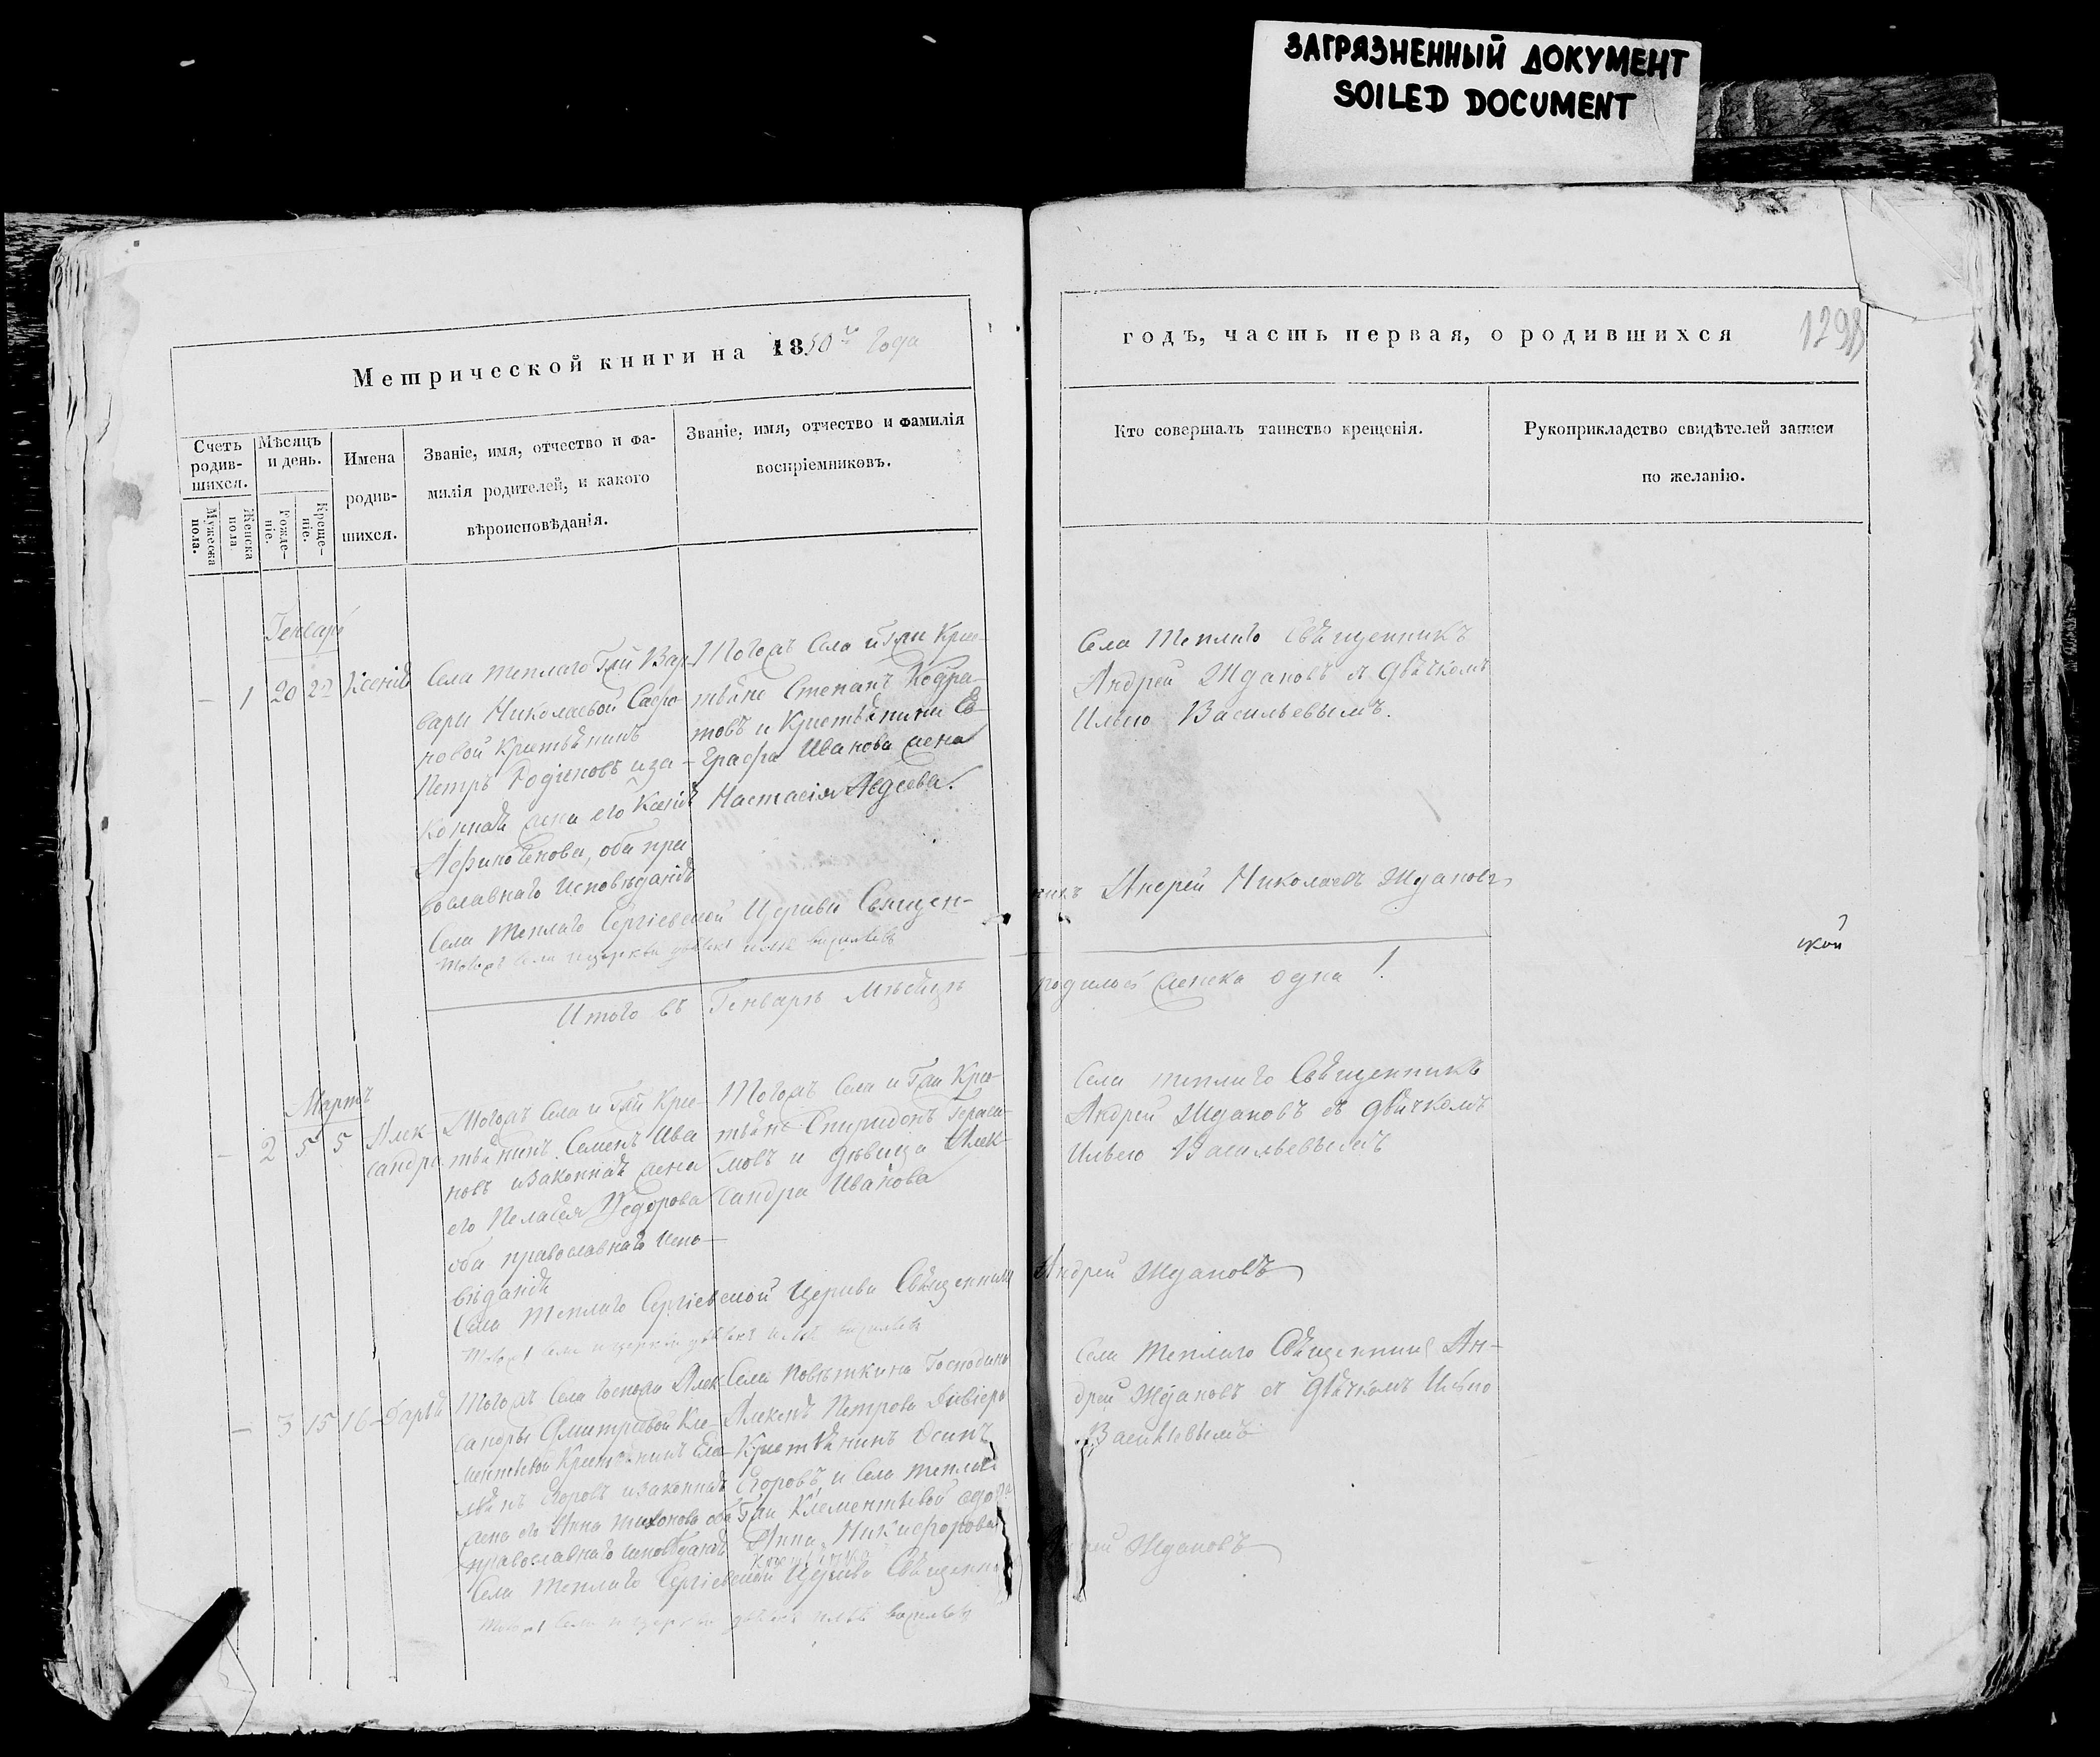 ЗАГРЯЗНЕННЫЙ ДОКУМЕНТ
SOILED DOCUMENT
Метрической книги на 1850го Года
годъ, часть первая, о родившихся
1298
Счетъ родив-шихся.
Мужеска пола.
Женска пола
Мѣсяцъ и день.
Рожде-ніе.
Креще-ніе.
Имена
родив-
шихся.
Званіе, имя, отчество и фа-
милія родителей, и какого
вѣроисповѣданія.
Званіе, имя, отчество и фамилія
воспріемниковъ.
Кто совершалъ таинство крещенія.
Рукоприкладство свидѣтелей записи
по желанію.
Генварь
— 1 20 22 Ксенія
Села Теплаго Гжи Вар-
вары Николаевой Сафо-
новой Крестьянинъ
Петръ Родіоновъ и за-
конная жена его Ксенія
оба пра
вославнаго Исповѣданія
Тогожъ Села и Гжи Крес-
тьяне Степанъ Кодра-
товъ и Крестьянина Ев-
графа Иванова жена
Настасія Авдеева.
Села Теплаго Священникъ
Андрей Ждановъ съ дьячкомъ
Ильею Васильевымъ.
Села Теплаго Сергіевской Церкви Священ-
никъ Андрей Николаевъ Ждановъ
Тогожъ Села и церкви дьячекъ Илья Васильевъ
ской
Итого въ Генварѣ Мѣсяцѣ
родилось женска одна 1.
Мартъ
— 2 5 5 Алек
сандра
Тогожъ Села и Гжи Крес-
тьянинъ Семенъ Ива
новъ и законная жена
его Пелагея Федорова
оба православнаго Испо-
вѣданія
Тогожъ Села и Гжи Крес-
тьяне Спиридонъ Гераси-
мовъ и дѣвица Алек-
сандра Иванова
Села Теплаго Священникъ
Андрей Ждановъ съ дьячкомъ
Ильею Васильевымъ
Села Теплаго Сергіевской Церкви Священникъ
Андрей Ждановъ
Тогожъ Села и церкви дьячекъ Илья Васильевъ
— 3 15 16 Дарья
Тогожъ Села Госпожи Алек-
сандры Дмитріевой Кле-
ментьевой Крестьянинъ
Егоровъ и законная
жена его Анна Тихонова оба
православнаго исповѣданія
Села Повѣткина Господина
Алексѣя Петрова
Крестьянинъ Осипъ
Егоровъ, и Села Теплаго
Гжи Клементьевой
Анна Никифорова
Села Теплаго Священникъ Ан-
дрей Ждановъ съ дьячкомъ Ильею
Васильевымъ
Села Теплаго Сергіевской Церкви Священни
Ждановъ
Тогожъ Села и церкви дьячекъ Илья Васильевъ